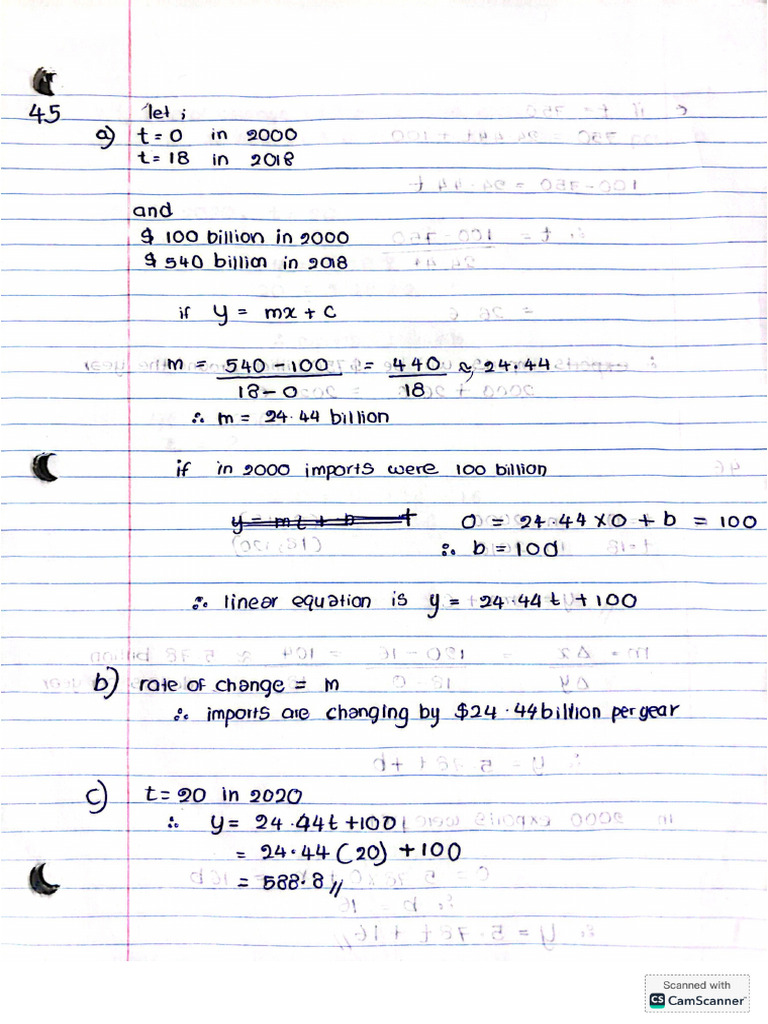 45 let ;
a) t = 0 in 2000
t = 18 in 2018
and
$ 100 billion in 2000
$ 540 billion in 2018
if y = mx + c
m = 540 - 100 = 440 ≈ 24.44
18 - 0 18
∴ m = 24.44 billion
if in 2000 imports were 100 billion
y = mt + b 0 = 24.44 x 0 + b = 100
∴ b = 100
∴ linear equation is y = 24.44 t + 100
b) rate of change = m
∴ imports are changing by $24.44 billion per year
c) t = 20 in 2020
∴ y = 24.44t + 100
= 24.44 (20) + 100
= 588.8 //
Scanned with
CS CamScanner